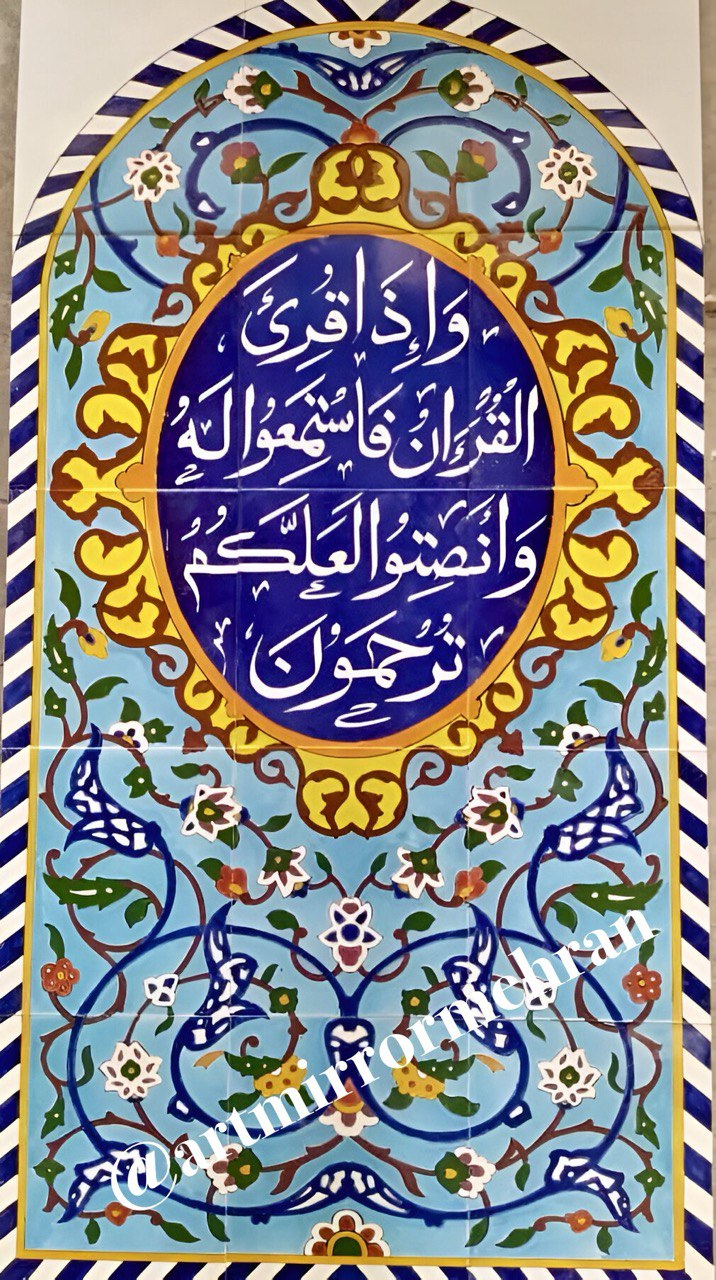 وَإِذَا قُرِئَ
الْقُرْءَانُ فَاسْتَمِعُوا لَهُ
وَأَنْصِتُوا لَعَلَّكُمْ
تُرْحَمُونَ
@artmirrormehran